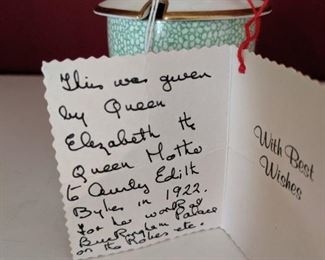 This was given
by Queen
Elizabeth the
Queen Mother
to Edith
in 1922.
for her work at
Buckingham Palace
on the Robes etc.
With Best
Wishes